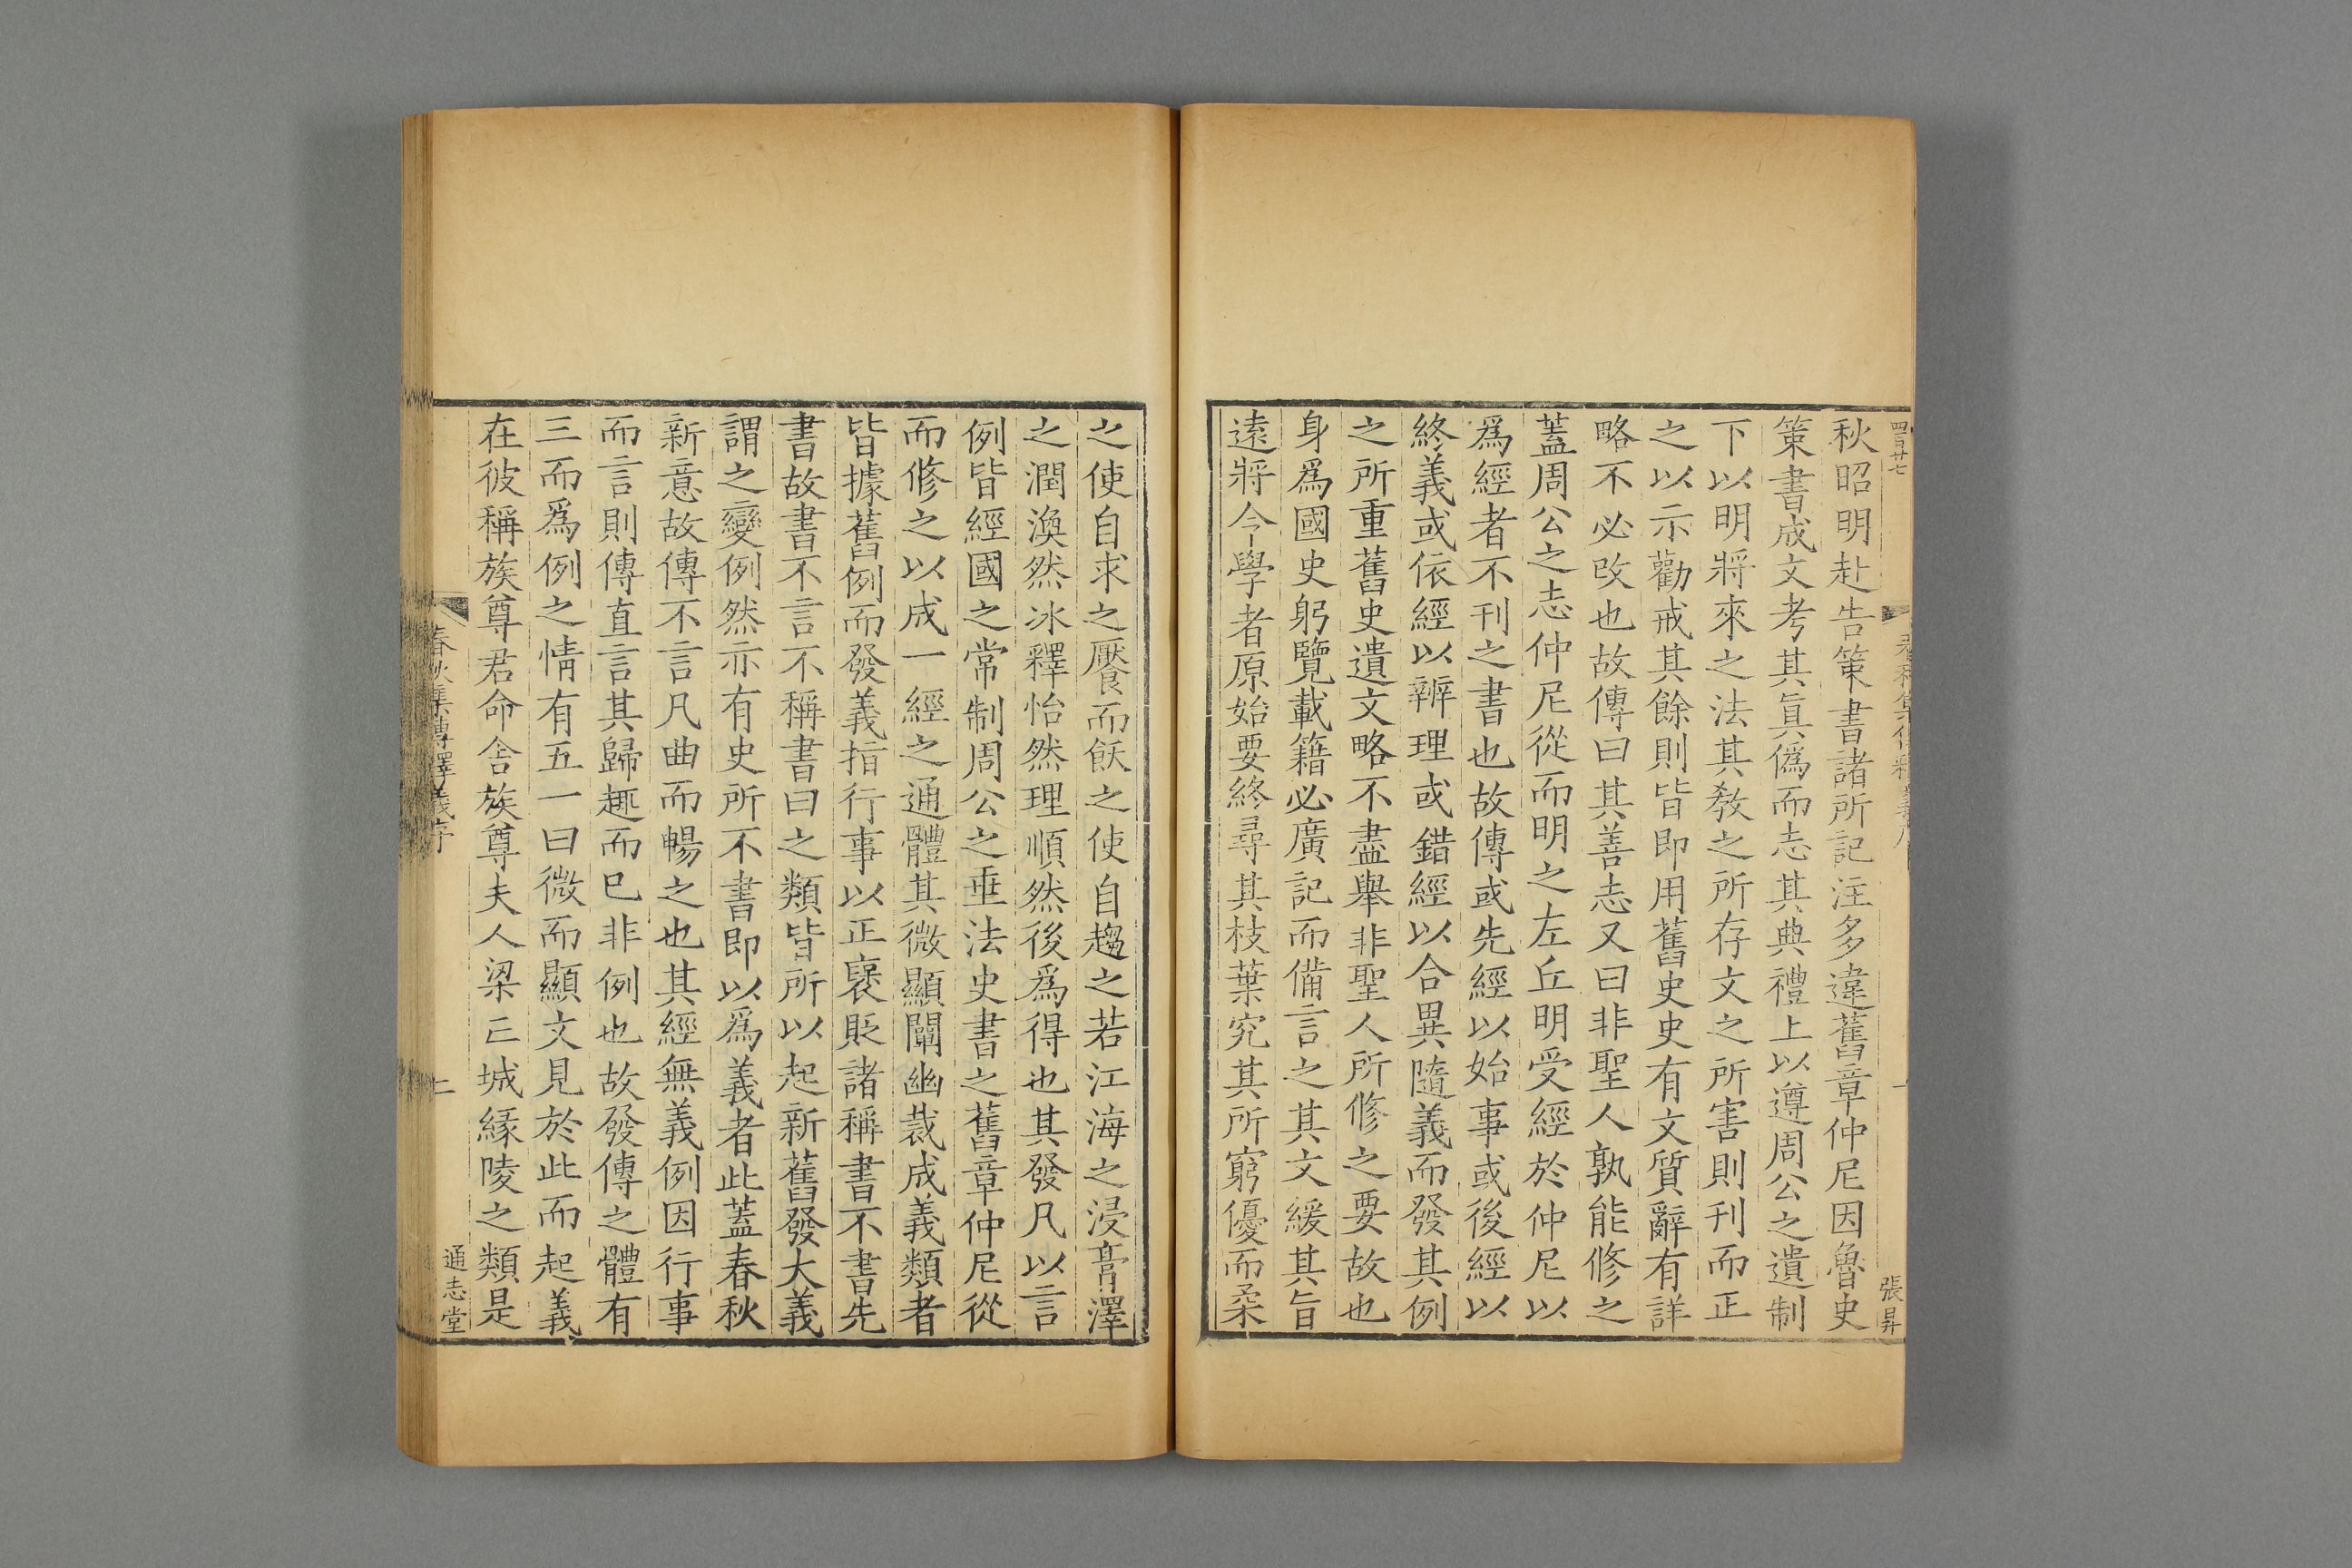 四百廿七
張昇
秋昭明赴告策書諸所記注多違舊章仲尼因魯史
策書成文考其眞僞而志其典禮上以遵周公之遺制
下以明將來之法其敎之所存文之所害則刊而正
之以示勸戒其餘則皆即用舊史史有文質辭有詳
略不必改也故傳曰其善志又曰非聖人孰能修之
蓋周公之志仲尼從而明之左丘明受經於仲尼以
爲經者不刊之書也故傳或先經以始事或後經以
終義或依經以辨理或錯經以合異隨義而發其例
之所重舊史遺文略不盡舉非聖人所修之要故也
身爲國史躬覽載籍必廣記而備言之其文緩其旨
遠將令學者原始要終尋其枝葉究其所窮優而柔
之使自求之饜而飫之使自趨之若江海之浸膏澤
之潤渙然冰釋怡然理順然後爲得也其發凡以言
例皆經國之常制周公之垂法史書之舊章仲尼從
而修之以成一經之通體其微顯闡幽裁成義類者
皆據舊例而發義指行事以正褒貶諸稱書不書先
書故書不言不稱書曰之類皆所以起新舊發大義
謂之變例然亦有史所不書即以爲義者此蓋春秋
新意故傳不言凡曲而暢之也其經無義例因行事
而言則傳直言其歸趣而已非例也故發傳之體有
三而爲例之情有五一曰微而顯文見於此而起義
在彼稱族尊君命舍族尊夫人梁亡城緣陵之類是
春秋集傳釋義序
二
通志堂